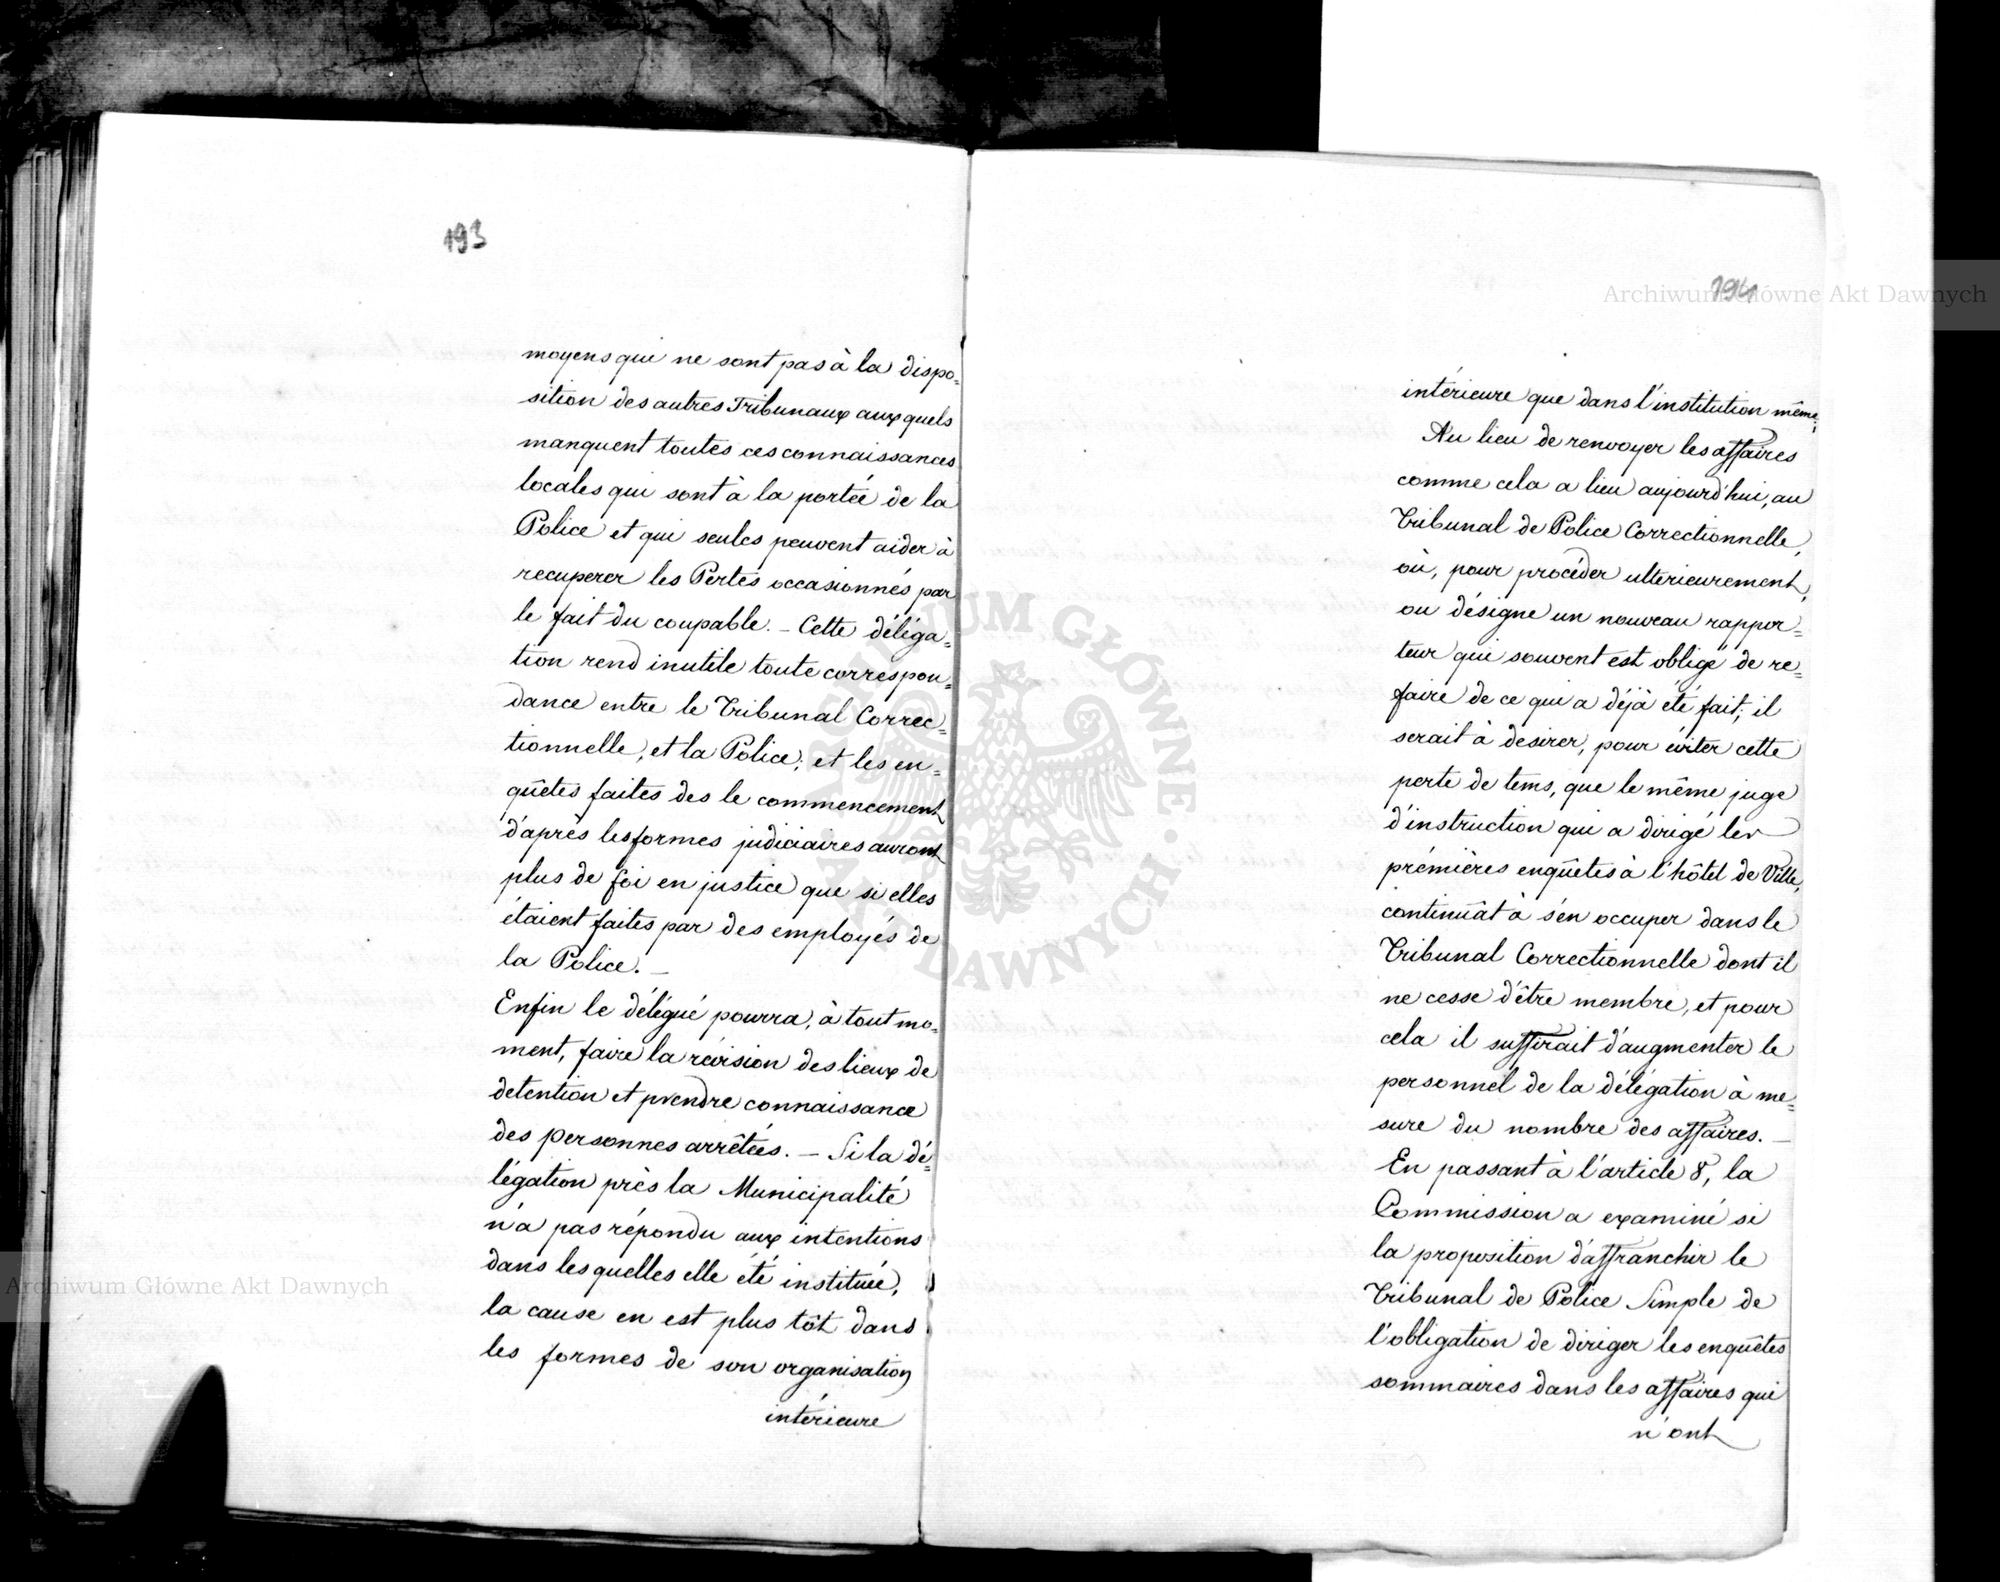 193
moyens qui ne sont pas à la dispo=
sition des autres Tribunaux auxquels
manquent toutes ces connaissances
locales qui sont à la portée de la
Police et qui seules peuvent aider à
recuperer les Pertes occasionnés par
le fait du coupable. – Cette déléga=
tion rend inutile toute correspon=
dance entre le Tribunal Correc=
tionnelle, et la Police; et les en=
quêtes faites des le commencement
d'après les formes judiciaires auront
plus de foi en justice que si elles
étaient faites par des employés de
la Police. –
Enfin le délégué pourra, à tout mo=
ment, faire la révision des lieux de
detention et prendre connaissance
des personnes arrêtées. – Si la dé=
légation près la Municipalité
n'a pas répondu aux intentions
dans lesquelles elle été instituée,
la cause en est plus tôt dans
les formes de son organisation
intérieure
194
intérieure que dans l'institution même;
Au lieu de renvoyer les affaires
comme cela a lieu aujourd'hui, au
Tribunal de Police Correctionnelle,
où, pour procéder ulterieurement,
ou désigne un nouveau rappor=
teur qui souvent est obligé de re=
faire de ce qui a déjà été fait; il
serait à desirer, pour éviter cette
perte de tems, que le même juge
d'instruction qui a dirigé les
prémières enquêtes à l'hôtel de Ville,
continuât à s'en occuper dans le
Tribunal Correctionnelle dont il
ne cesse d'être membre, et pour
cela il suffirait d'augmenter le
personnel de la délégation à me=
sure du nombre des affaires. –
En passant à l'article 8, la
Commission a examiné si
la proposition d'affranchir le
Tribunal de Police Simple de
l'obligation de diriger les enquêtes
sommaires dans les affaires qui
n'ont
Archiwum Główne Akt Dawnych
Archiwum Główne Akt Dawnych
ARCHIWUM GŁÓWNE AKT DAWNYCH